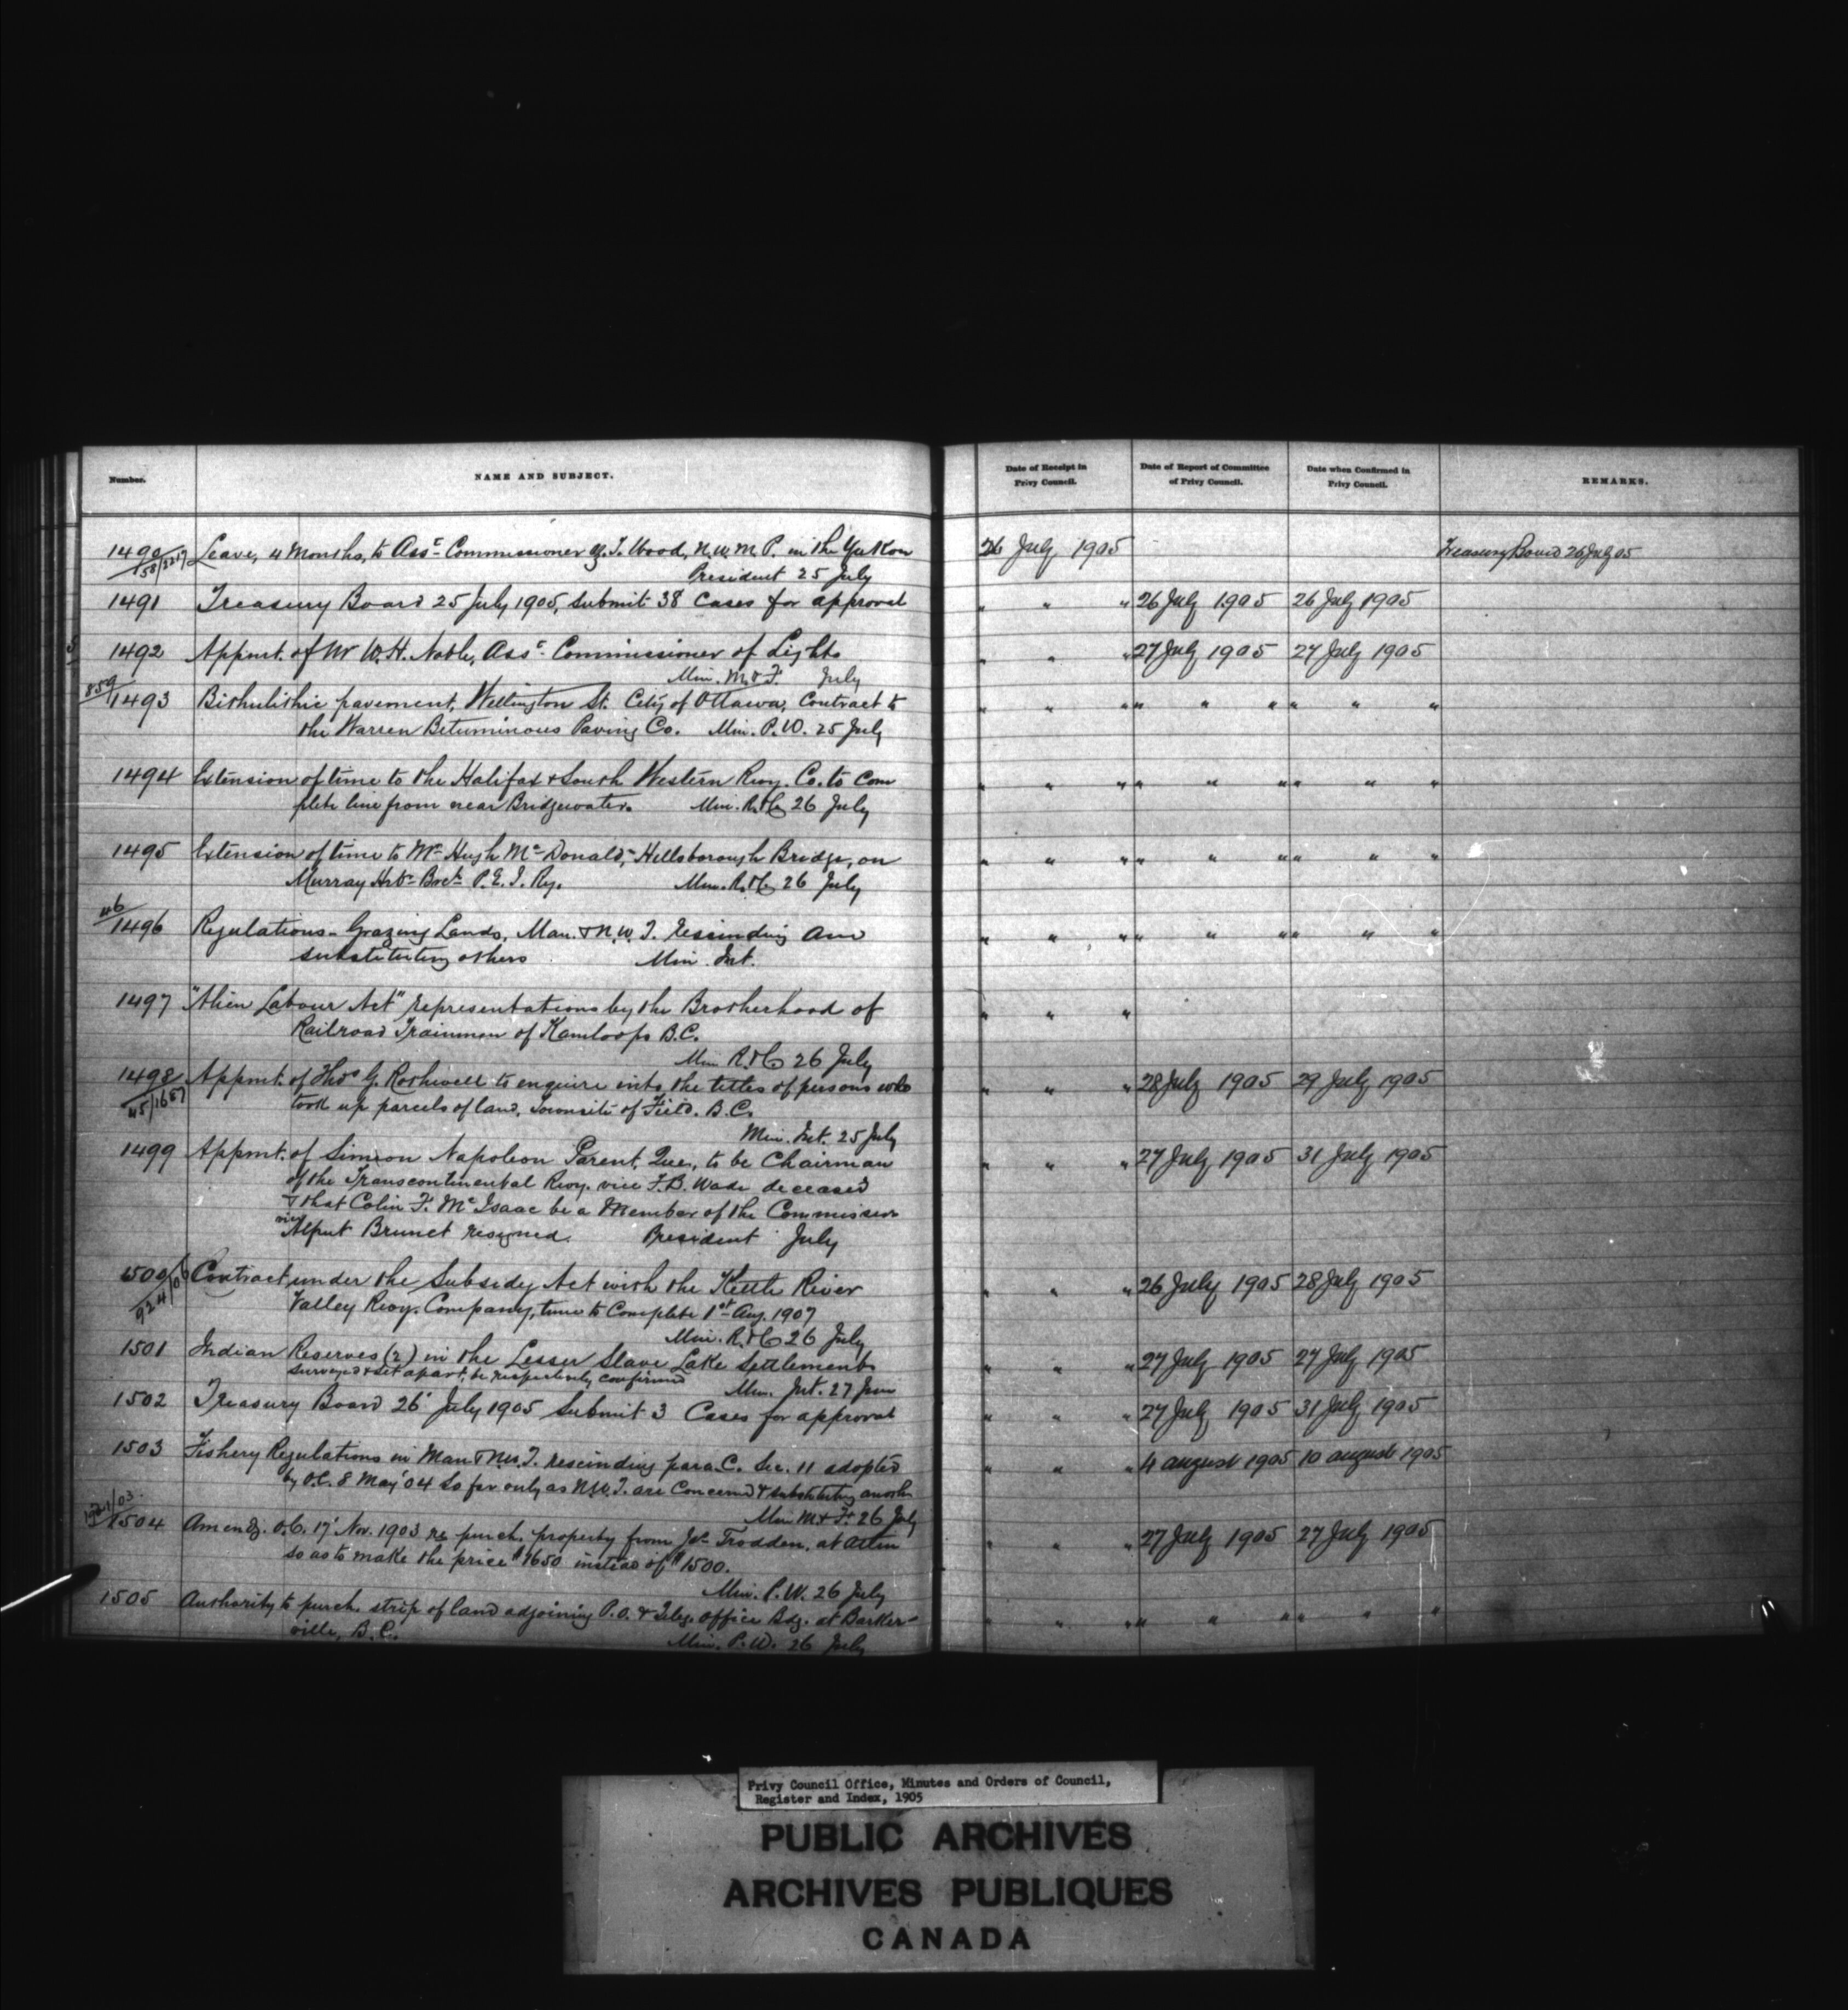 Number.
NAME AND SUBJECT.
Date of Receipt in
Privy Council.
Date of Report of Committee
of Privy Council.
Date when Confirmed in
Privy Council.
REMARKS.
1490 Leave, 4 Months, to Asst Commissioner Z. T. Wood, N.W.M.P. in the Yukon 26 July 1905 Treasury Board 26 July 05
President 25 July
1491 Treasury Board 25 July 1905, Submit 38 Cases for approval " " " 26 July 1905 26 July 1905
1492 Appmt. of Mr W. H. Noble, Asst Commissioner of Lights " " " 27 July 1905 27 July 1905
Min. M & F. July
859
1493 Bithulithic pavement, Wellington St. City of Ottawa, Contract to " " " " " " " " "
the Warren Bituminous Paving Co. Min. P.W. 25 July
1494 Extension of time to the Halifax & South Western Rwy. Co. to Com " " " " " " " " "
plete line from near Bridgewater. Min. R. & C. 26 July
1495 Extension of time to Mr Hugh McDonald, Hillsborough Bridge, on " " " " " " " " "
Murray Hrbr Brch P.E.I. Ry. Min. R. & C. 26 July
46
1496 Regulations - Grazing Lands, Man. & N.W.T. rescinding and " " " " " " " " "
substituting others Min. Int.
1497 "Alien Labour Act" representations by the Brotherhood of " " "
Railroad Trainmen of Kamloops B.C.
Min R. & C. 26 July
1498 Appmt. of Thos G. Rothwell to enquire into the titles of persons who " " " 28 July 1905 29 July 1905
45/1657 took up parcels of land, Townsite of Field. B.C.
Min. Int. 25 July
1499 Appmt. of Simeon Napoleon Parent, Que., to be Chairman " " " 27 July 1905 31 July 1905
of the Transcontinental Rwy. vice F. B. Wade deceased
& that Colin F. McIsaac be a Member of the Commission
vice Alfert Brunet resigned. President July
1500 Contract under the Subsidy Act with the Kettle River " " " 26 July 1905 28 July 1905
Valley Rwy. Company, time to Complete 1st Aug. 1907
Min. R. & C. 26 July
1501 Indian Reserves (2) in the Lesser Slave Lake Settlements " " " 27 July 1905 27 July 1905
surveyed & set apart, be respectively confirmed Min. Int. 27 June
1502 Treasury Board 26 July 1905 Submit 3 Cases for approval " " " 27 July 1905 31 July 1905
1503 Fishery Regulations in Man & N.W.T. rescinding para C. Sec. 11 adopted " " " 4 august 1905 10 august 1905
by O.C. 8 May '04 so far only as N.W.T. are Concerned & substituting another
Min M & F. 26 July
1504 Amendg. O.C. 17' Nov. 1903 re purch. property from Js Trodden, at " " " 27 July 1905 27 July 1905
so as to make the price $1650 instead of $1500.
Min. P.W. 26 July
1505 Authority to purch. strip of land adjoining P.O. & Teleg. office Bdg. at Barker- " " " " " " " " "
ville, B.C. Min. P.W. 26 July
Privy Council Office, Minutes and Orders of Council,
Register and Index, 1905
PUBLIC ARCHIVES
ARCHIVES PUBLIQUES
CANADA